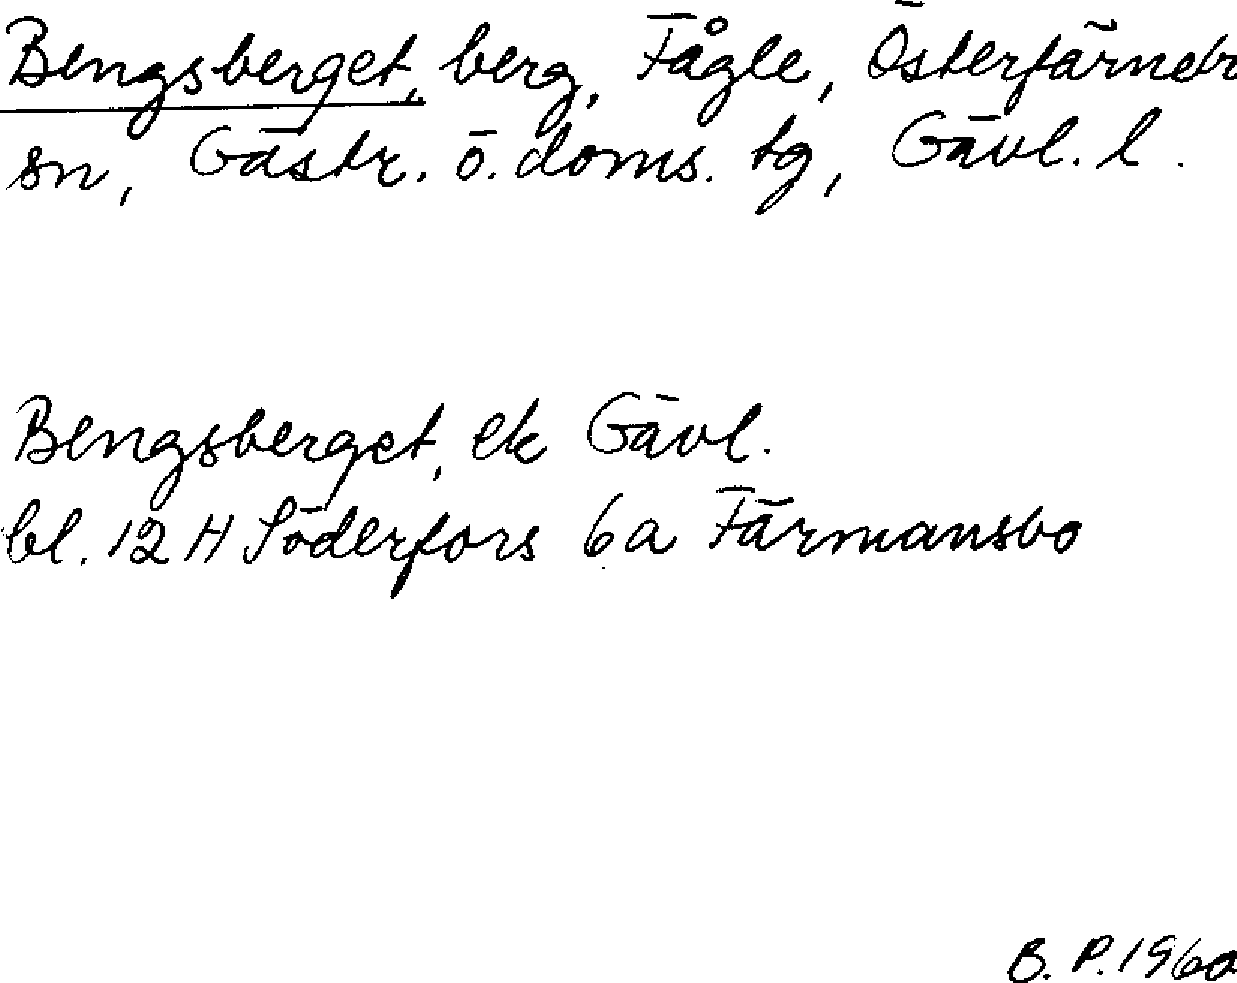 Bengsberget, berg, Fågle, Österfärnebo
sn, Gästr. ö. doms. tg, Gävl. l.
Bengsberget, ek Gävl.
bl. 12 H Söderfors 6a Färmansbo
B. P. 1960